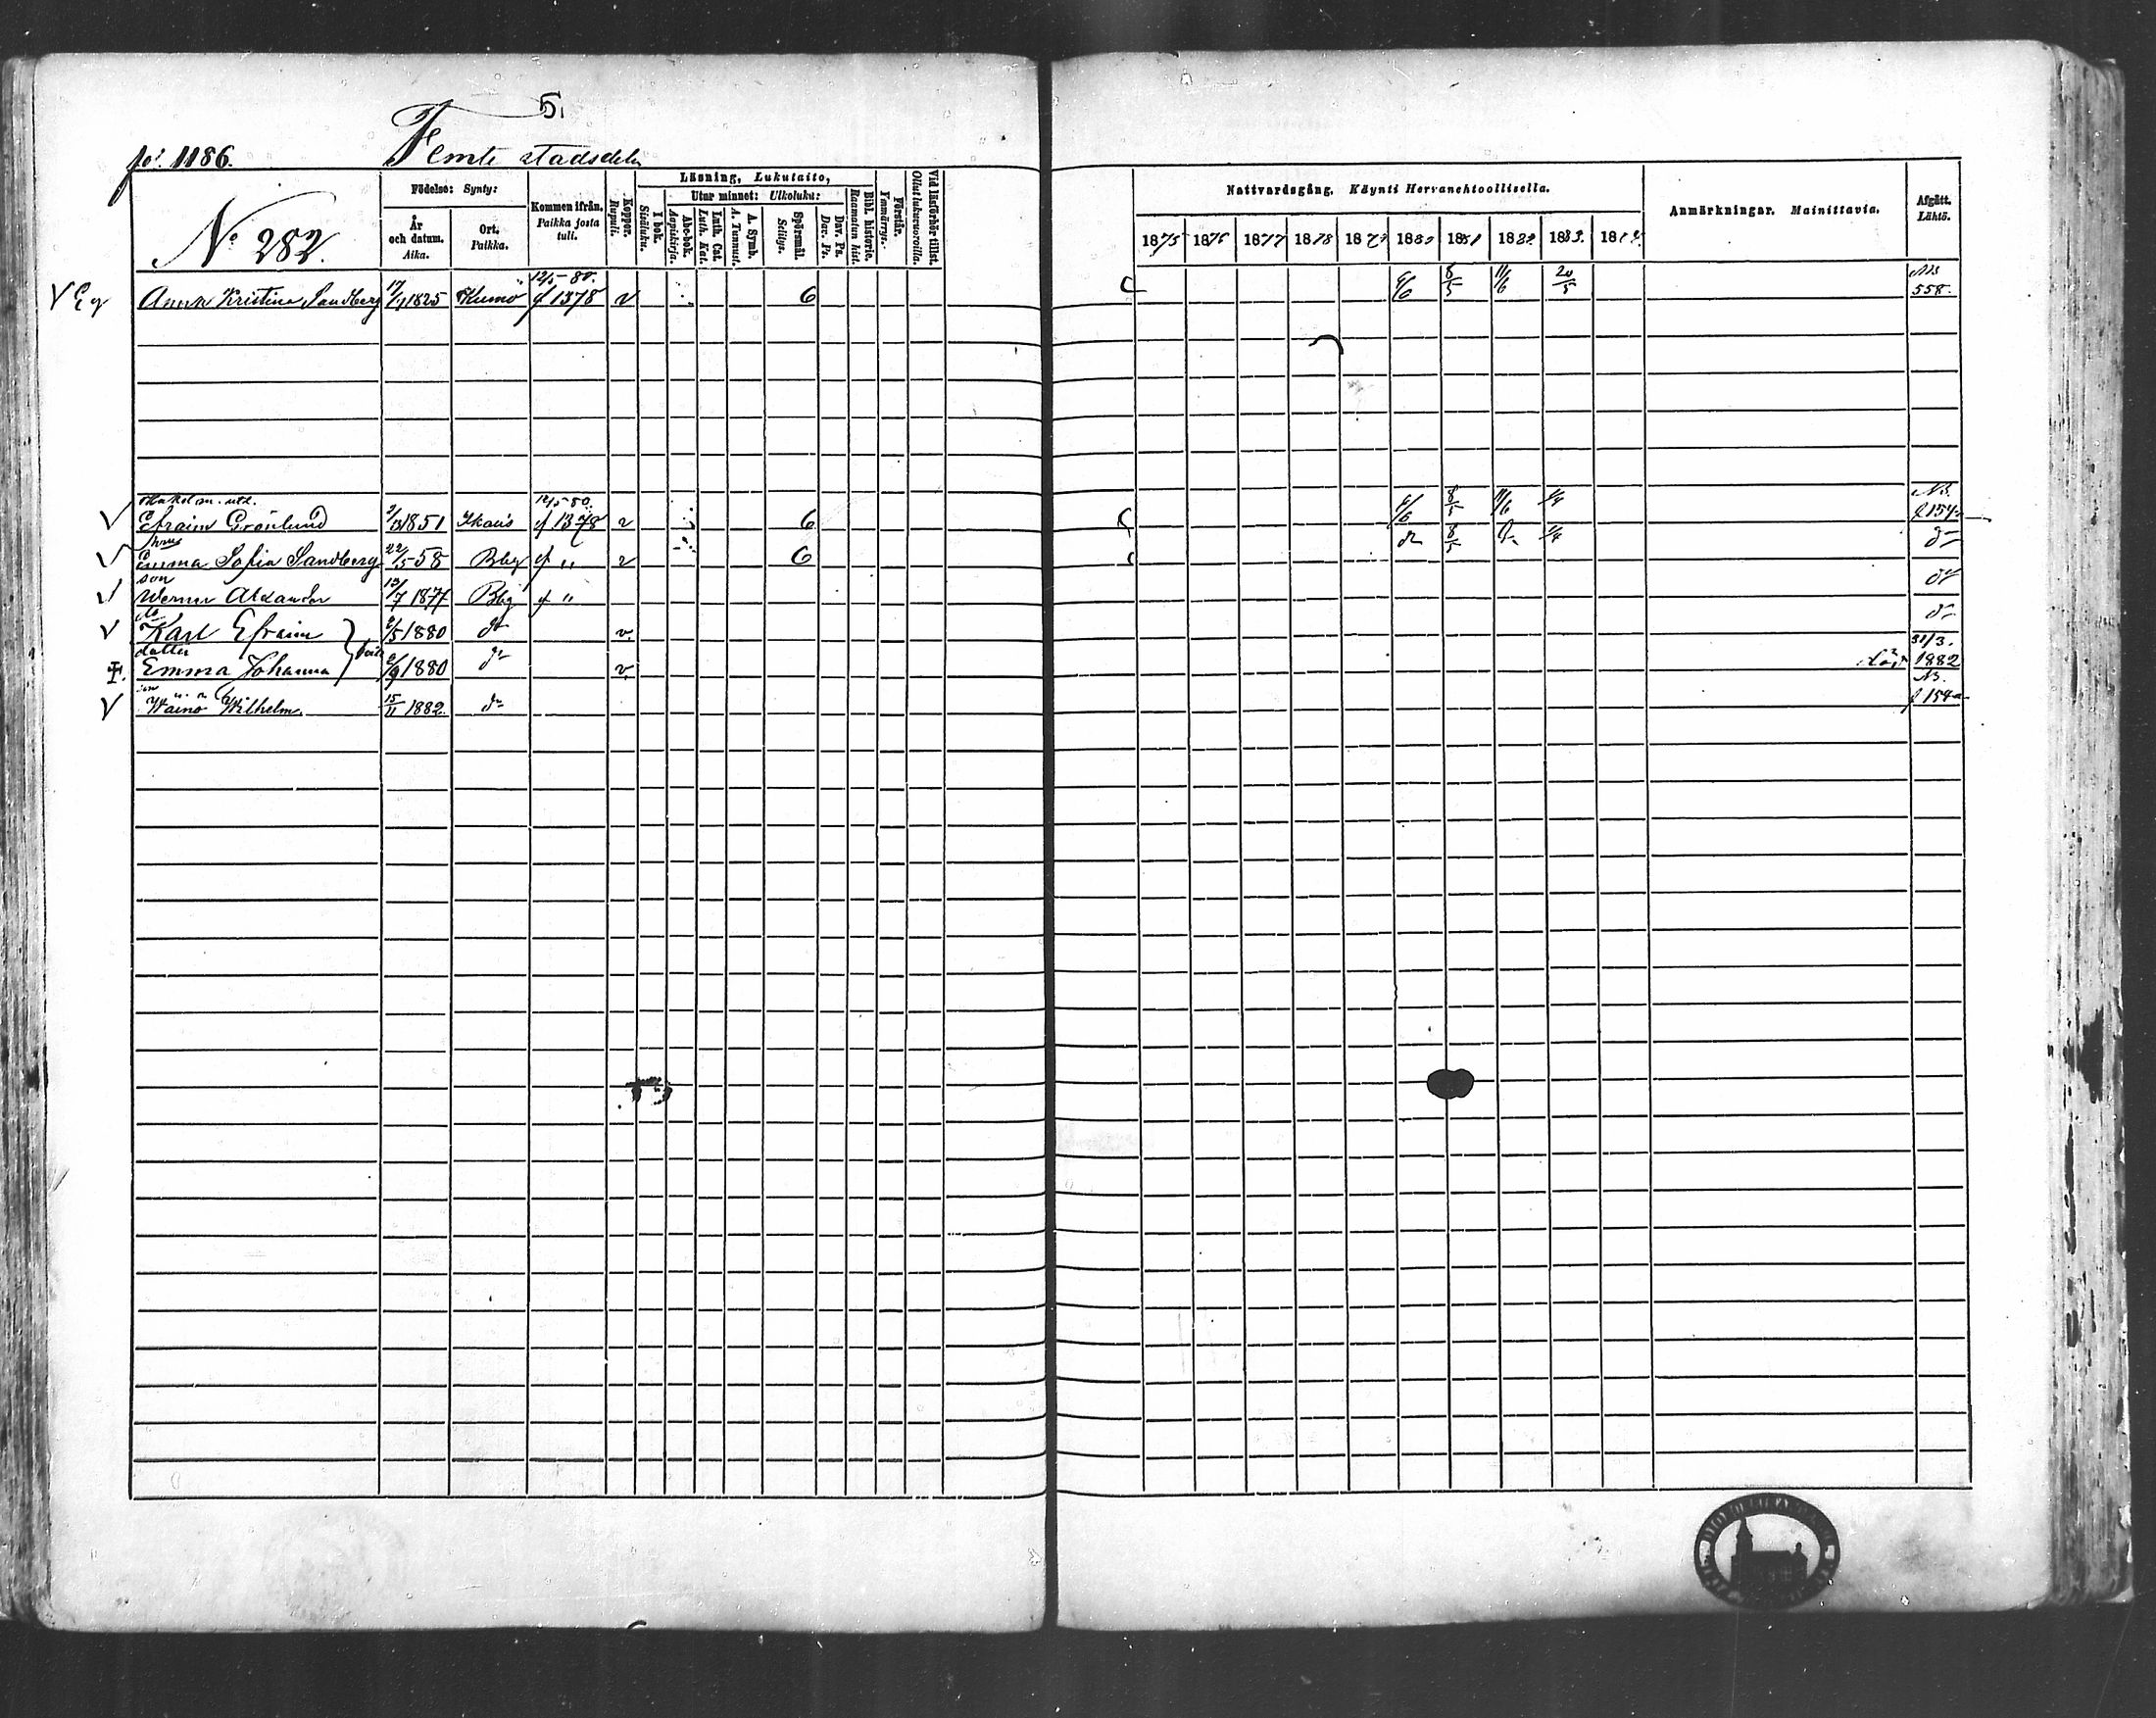 5.
fol. 1186. Femte stadsdelen
No 282.
Födelse: Synty:
År och datum. Aika.
Ort. Paikka.
Kommen ifrån. Paikka josta tuli.
Koppor. Rupuli.
Läsning, Lukutaito,
I bok. Sisäluku.
Utur minnet: Ulkoluku:
Abc-bok. Aapiskirja.
Luth. Cat. Luth. Kat.
A. Symb. A. Tunnust.
Spörsmål. Selitys.
Dav. Ps. Dav. Ps.
Bibl. historie. Raamatun hist.
Förstår. Ymmärrys.
Vid läsförhör tillst. Ollut lukuvuoroilla.
Nattvardsgång. Käynti Herranehtoollisella.
1875 1876 1877 1878 1879 1880 1881 1882 1883 18
Anmärkningar. Mainittavia.
Afgått. Lähtö.
12/5-80. NB
Anna Kristina Sandberg 17/ 1825 Kumo f 1378 v 6 6/6 8/5 11/6 20/5 558.
12/5 80. NB.
Efraim Grönlund 1851 Ikalis f 1378 v 6 6/6 8/5 11/6 f 154
hus
Emma Sofia Sandberg 22/5-58 Bbg f " v 6 8/5
son
Werner Alexander 13/7 187 Bbg f "
do
Karl Efraim /5 1880 do v.
dotter 31/3.
Emma Johanna /9 1880 do v död 1882
son NB.
Wäinö Wilhelm. 15/11 1882. do f 154